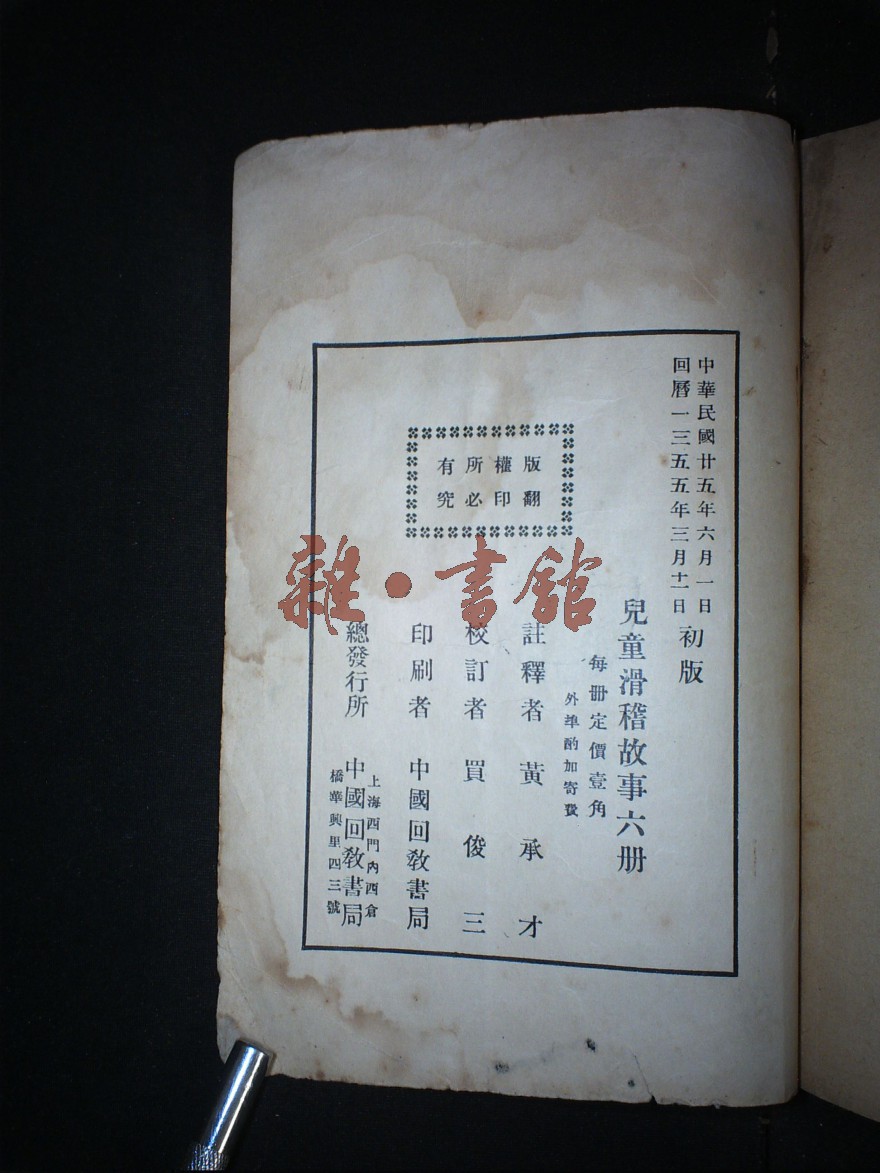 中華民國廿五年六月一日
回曆一三五五年三月十一日
初版
兒童滑稽故事六册
每册定價壹角
外埠酌加寄費
註釋者 黃承才
校訂者 買俊三
印刷者 中國回敎書局
總發行所 中國回敎書局
上海西門內西倉
橋華興里四三號
版權所有
翻印必究
雜·書館